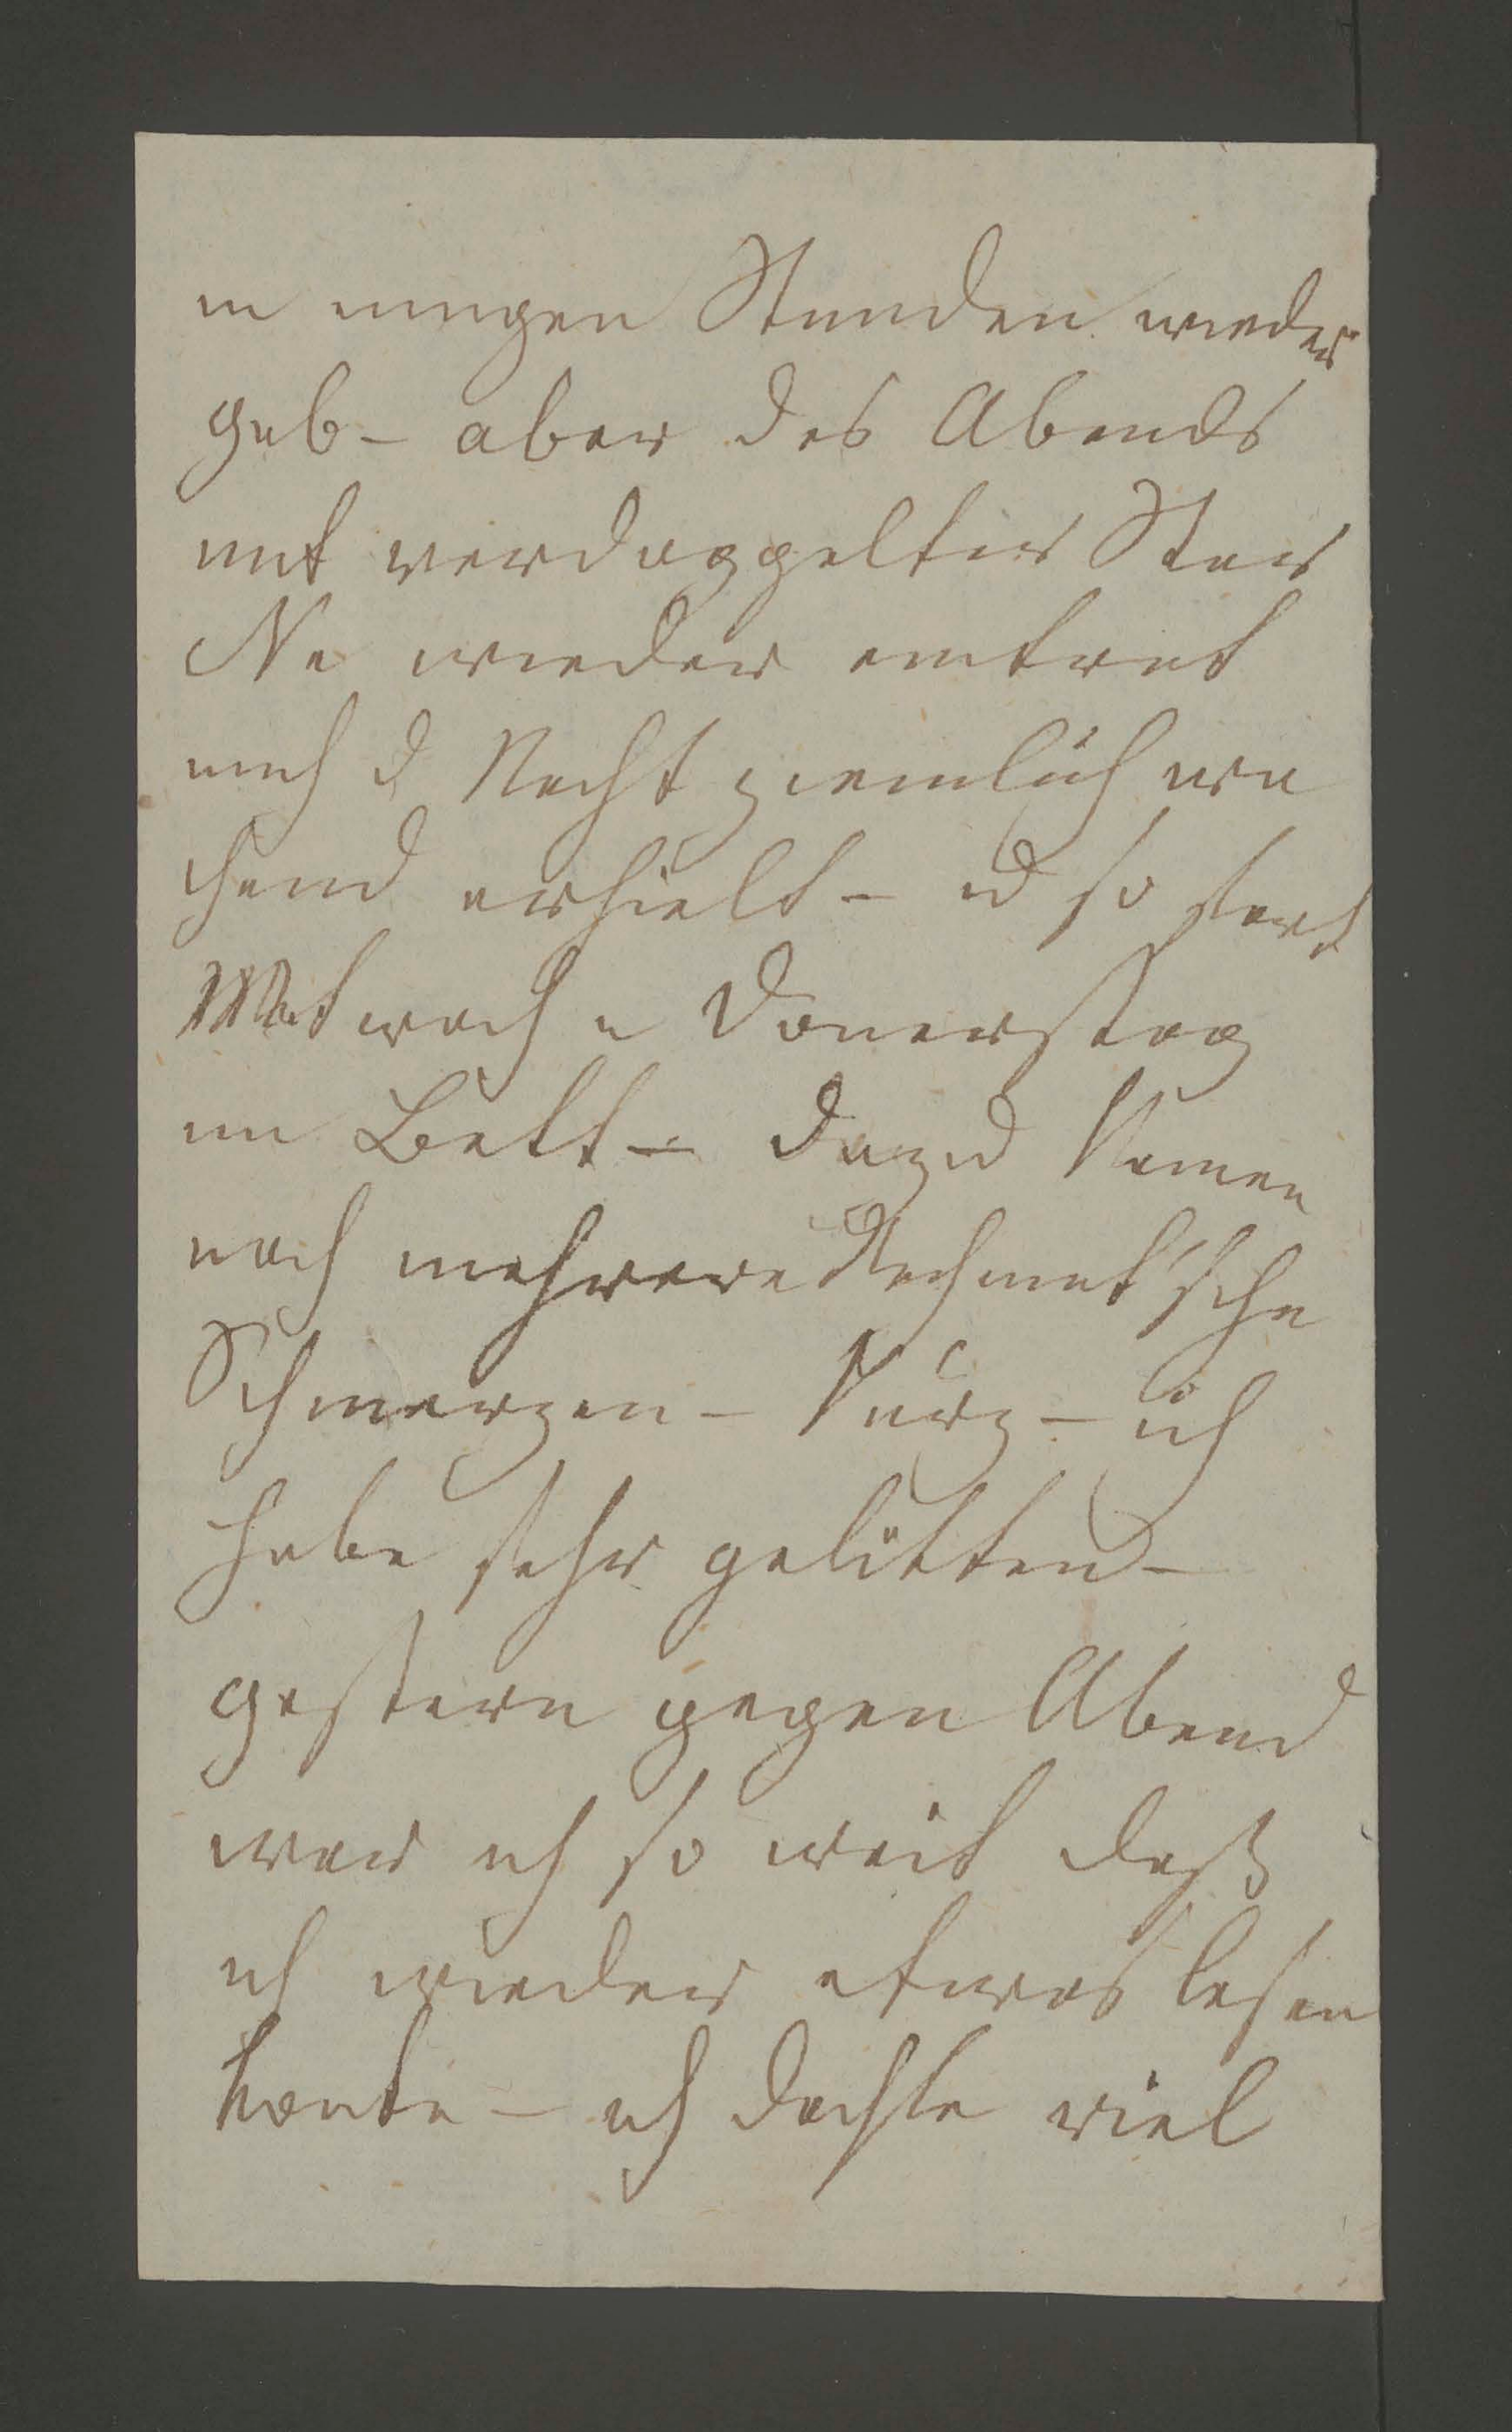 in einigen Stunden wieder
gab – aber des Abends
mit verdoppelter Stär
ke wieder eintrat
mich d Nacht ziemlich wa
chend erhielt – u so
Mitwoch u Donerstag
im Bett – dazu kamen
noch mehrere
Schmerzen – kurz – ich
habe sehr gelitten –
gestern gegen Abend
war ich so weit daß
ich wieder etwas lesen
konte – ich dachte viel